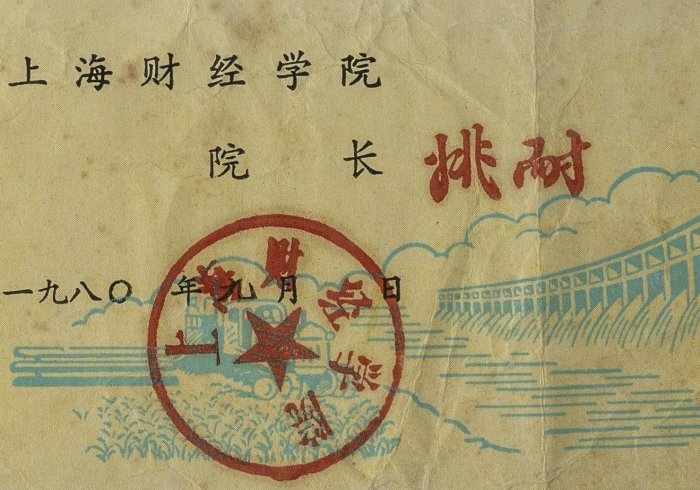 上海财经学院
院 长 姚耐
一九八〇 年 九 月 日
上海财经学院